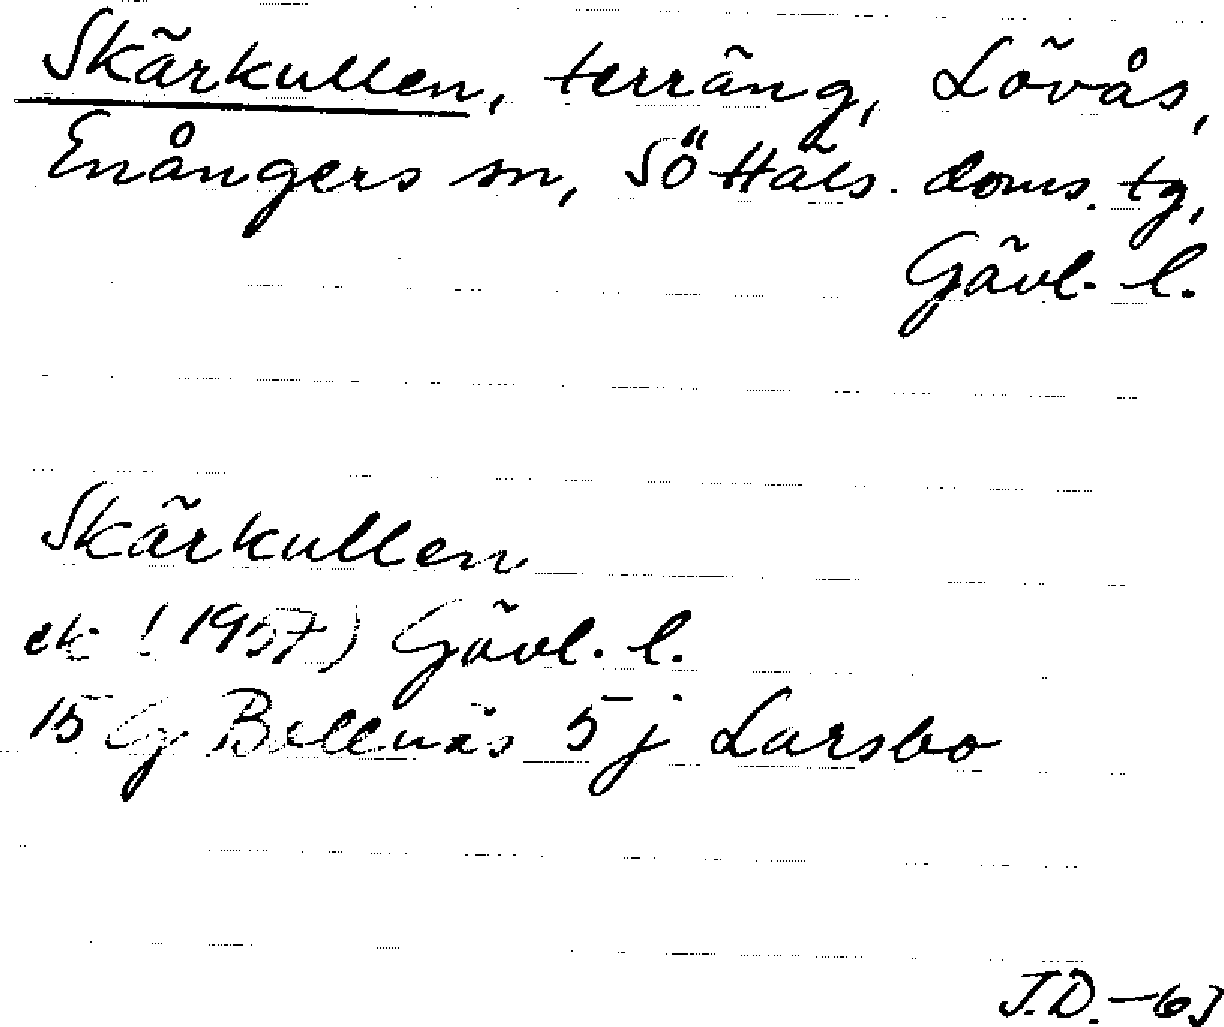 Skärkullen, terräng, Lövås,
Enångers sn, Sö Häls. doms. tg,
Gävl. l.
Skärkullen
ek (1957) Gävl. l.
15 G Bellnäs 5 j Larsbo
J.D. -63